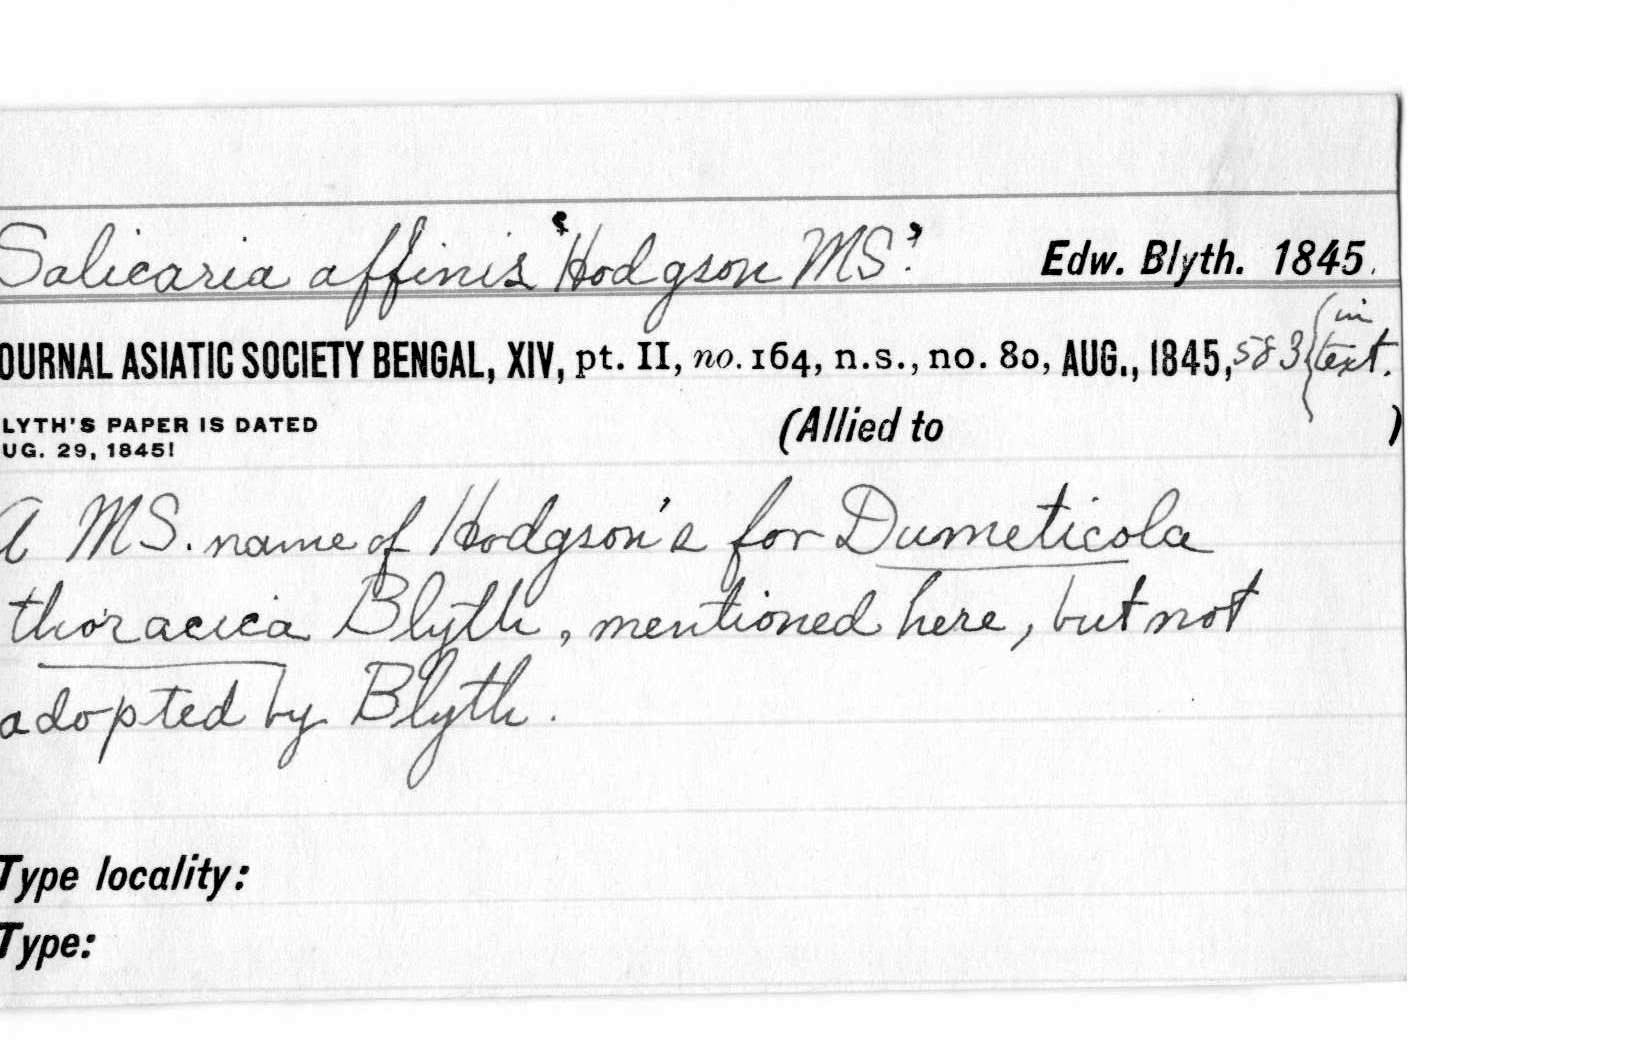 Salicaria affinis 'Hodgson MS'. Edw. Blyth. 1845.
OURNAL ASIATIC SOCIETY BENGAL, XIV, pt. II, no. 164, n.s., no. 80, AUG., 1845, 583 { in text.
LYTH'S PAPER IS DATED
UG. 29, 1845!
(Allied to )
A MS. name of Hodgson's for Dumeticola
thoracica Blyth, mentioned here, but not
adopted by Blyth.
Type locality:
Type: